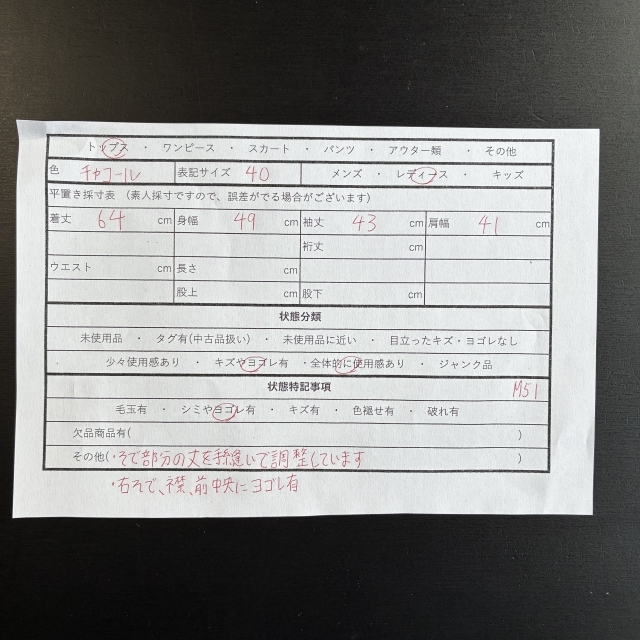 トップス ・ ワンピース ・ スカート ・ パンツ ・ アウター類 ・ その他
色 チャコール 表記サイズ 40 メンズ ・ レディース ・ キッズ
平置き採寸表 （素人採寸ですので、誤差がでる場合がございます）
着丈 64 cm 身幅 49 cm 袖丈 43 cm 肩幅 41 cm
裄丈 cm
ウエスト cm 長さ cm
股上 cm 股下 cm
状態分類
未使用品 ・ タグ有(中古品扱い) ・ 未使用品に近い ・ 目立ったキズ・ヨゴレなし
・ 少々使用感あり ・ キズやヨゴレ有 ・全体的に使用感あり ・ ジャンク品
状態特記事項 M51
毛玉有 ・ シミやヨゴレ有 ・ キズ有 ・ 色褪せ有 ・ 破れ有
欠品商品有( )
その他(・そで部分の丈を手縫いで調整しています )
・右そで、襟、前中央にヨゴレ有